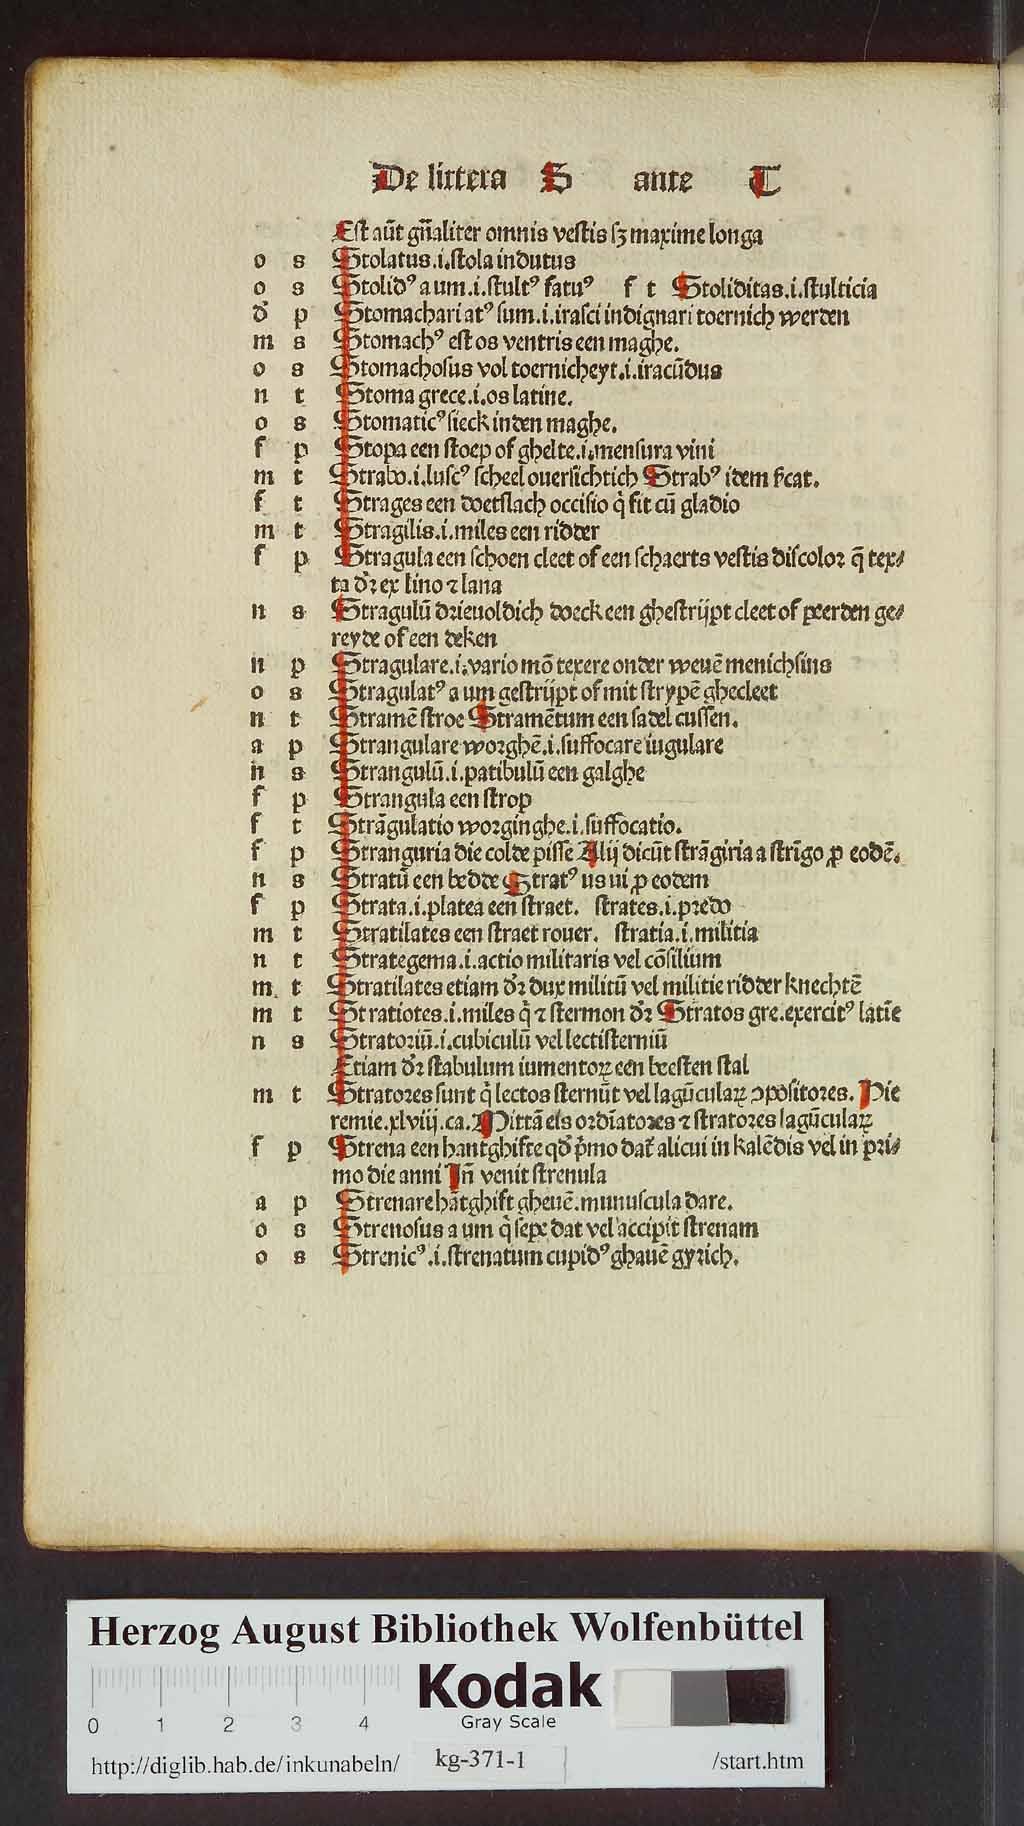 De littera S ante T
Est aūt gn̄aliter omnis vestis sꝫ maxime longa
o s Stolatus.i.stola indutus
o s Stolidꝰ a um.i.stultꝰ fatuꝰ f t Stoliditas.i.stulticia
d̕ p Stomachari atꝰ sum.i.irasci indignari toernich werden
m s Stomachꝰ est os ventris een maghe.
o s Stomachosus vol toernicheyt.i.iracūdus
n t Stoma grece.i.os latine.
o s Stomaticꝰ sieck in den maghe.
f p Stopa een stoep of ghelte.i.mensura vini
m t Strabo.i.luscꝰ scheel ouersichtich Strabꝰ idem
f t Strages een doetslach occisio q̇ fit cū gladio
m t Stragilis.i.miles een ridder
f p Stragula een schoen cleet of een schaerts vestis discolor q̄ tex⸗
ta dr̄ ex lino ⁊ lana
n s Stragulū drieuoldich doeck een ghestrijpt cleet of peerden ge⸗
reyde of een deken
n p Stragulare.i.vario mō texere onder weuē menichsins
o s Stragulatꝰ a um gestrijpt of mit strypē ghecleet
n t Stramē stroe Stramētum een sadel cussen.
a p Strangulare worghē.i.suffocare iugulare
n s Strangulū.i.patibulū een galghe
f p Strangula een strop
f t Strāgulatio worginghe.i.suffocatio.
f p Stranguria die colde pisse Alij dicūt strāgiria a strīgo ꝓ eodē.
n s Stratū een bedde Stratꝰ us ui ꝓ eodem
f p Strata.i.platea een straet. strates.i.predo
m t Stratilates een straet rouer. stratia.i.militia
n t Strategema.i.actio militaris vel cōsilium
m t Stratilates etiam dr̄ dux militū vel militie ridder knechtē
m t Stratiotes.i.miles q̇ ⁊ stermon dr̄ Stratos gre.exercitꝰ latīe
n s Stratoriū.i.cubiculū vel lectisterniū
Etiam dr̄ stabulum iumentoꝝ een beesten stal
m t Stratores sunt q̇ lectos sternūt vel lagūculaꝝ ꝯpositores. Hie
remie.xlviij.ca.Mittā eis ordīatores ⁊ stratores lagūculaꝝ
f p Strena een hantghifte qd̄ p̄mo dat̄ alicui in kalēdis vel in pri⸗
mo die anni Jn̄ venit strenula
a p Strenare hātghift gheuē.munuscula dare.
o s Strenosus a um q̇ sepe dat vel accipit strenam
o s Strenicꝰ.i.strenatum cupidꝰ ghauē gyrich.
Herzog August Bibliothek Wolfenbüttel
Kodak
0 1 2 3 4
Gray Scale
http://diglib.hab.de/inkunabeln/ kg-371-1 /start.htm